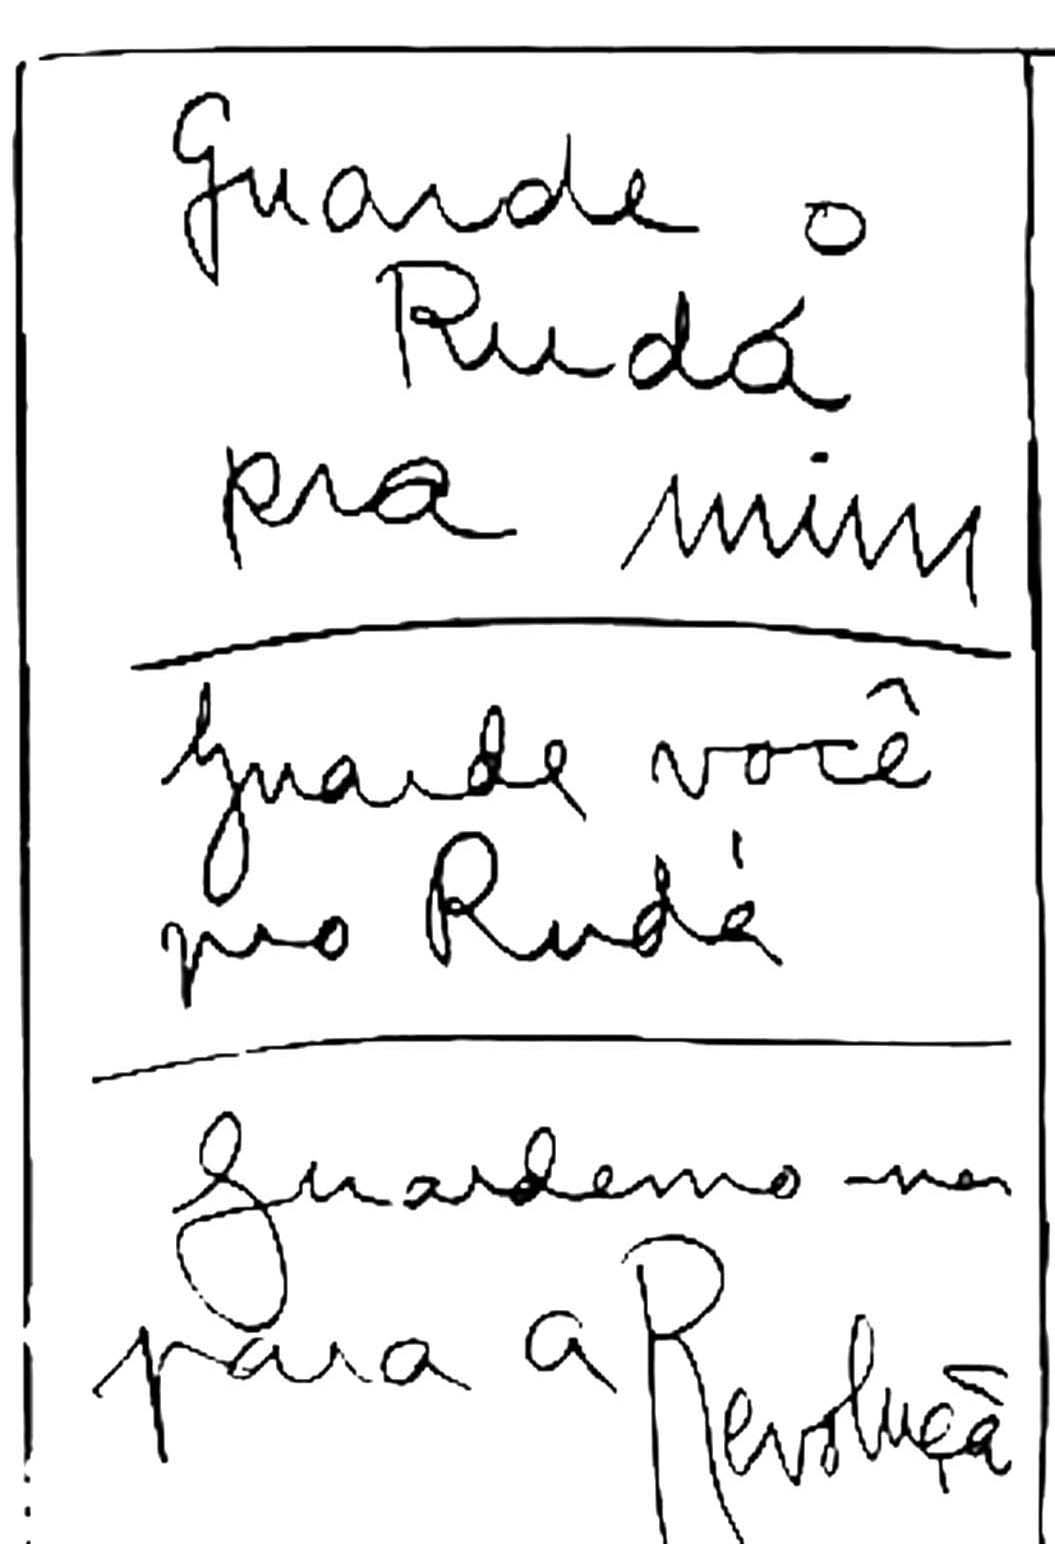 Guarde o
Rudá
pra mim
Guarde você
pro Rudá
Guardemo-nos
para a
Revoluçã